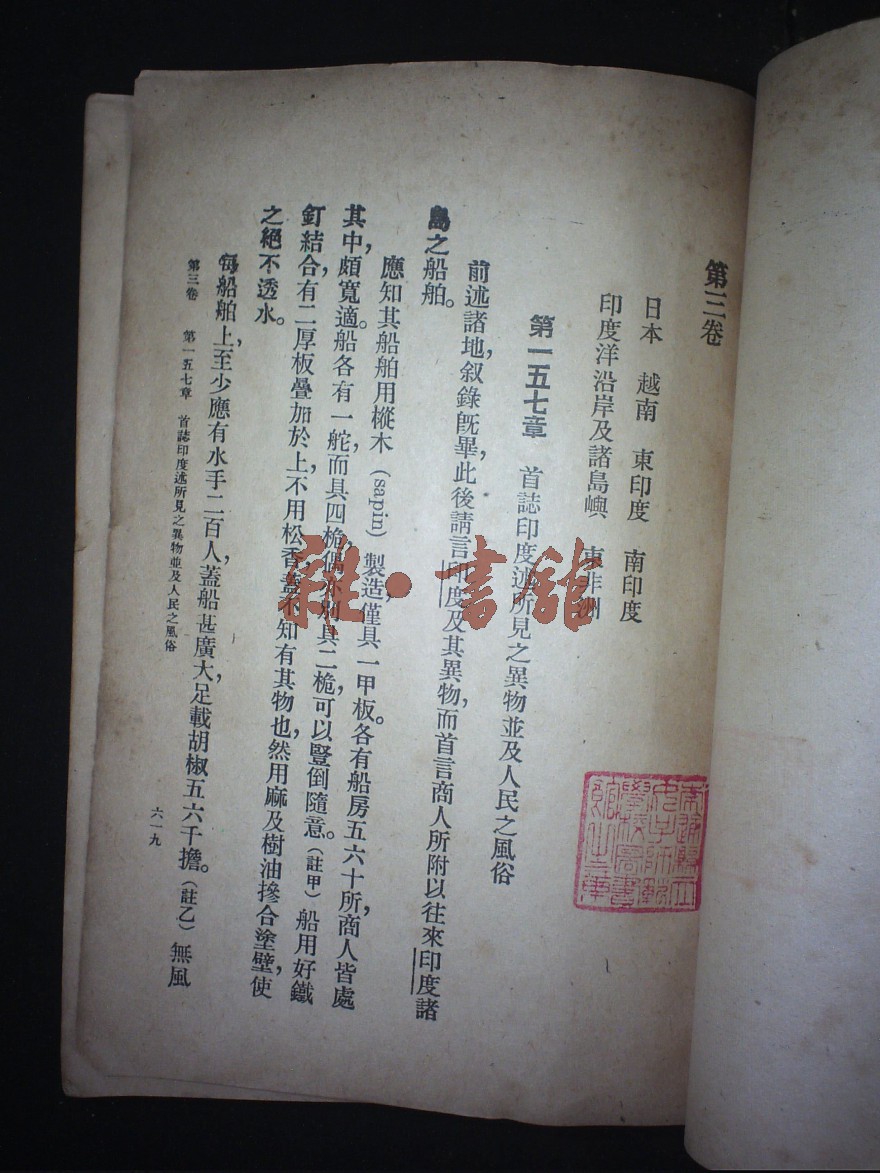 第三卷
日本　越南　東印度　南印度
印度洋沿岸及諸島嶼　東非洲
第一五七章　首誌印度述所見之異物並及人民之風俗
前述諸地，叙錄旣畢，此後請言印度及其異物，而首言商人所附以往來印度諸
島之船舶。
應知其船舶用樅木（sapin）製造，僅具一甲板。各有船房五六十所，商人皆處
其中，頗寬適。船各有一舵，而具四桅，偶亦別具二桅，可以豎倒隨意。（註甲）船用好鐵
釘結合，有二厚板疊加於上，不用松香，蓋不知有其物也，然用麻及樹油摻合塗壁，使
之絕不透水。
每船舶上，至少應有水手二百人，蓋船甚廣大，足載胡椒五六千擔。（註乙）無風
第三卷　第一五七章　首誌印度述所見之異物並及人民之風俗
六一九
雜·書館